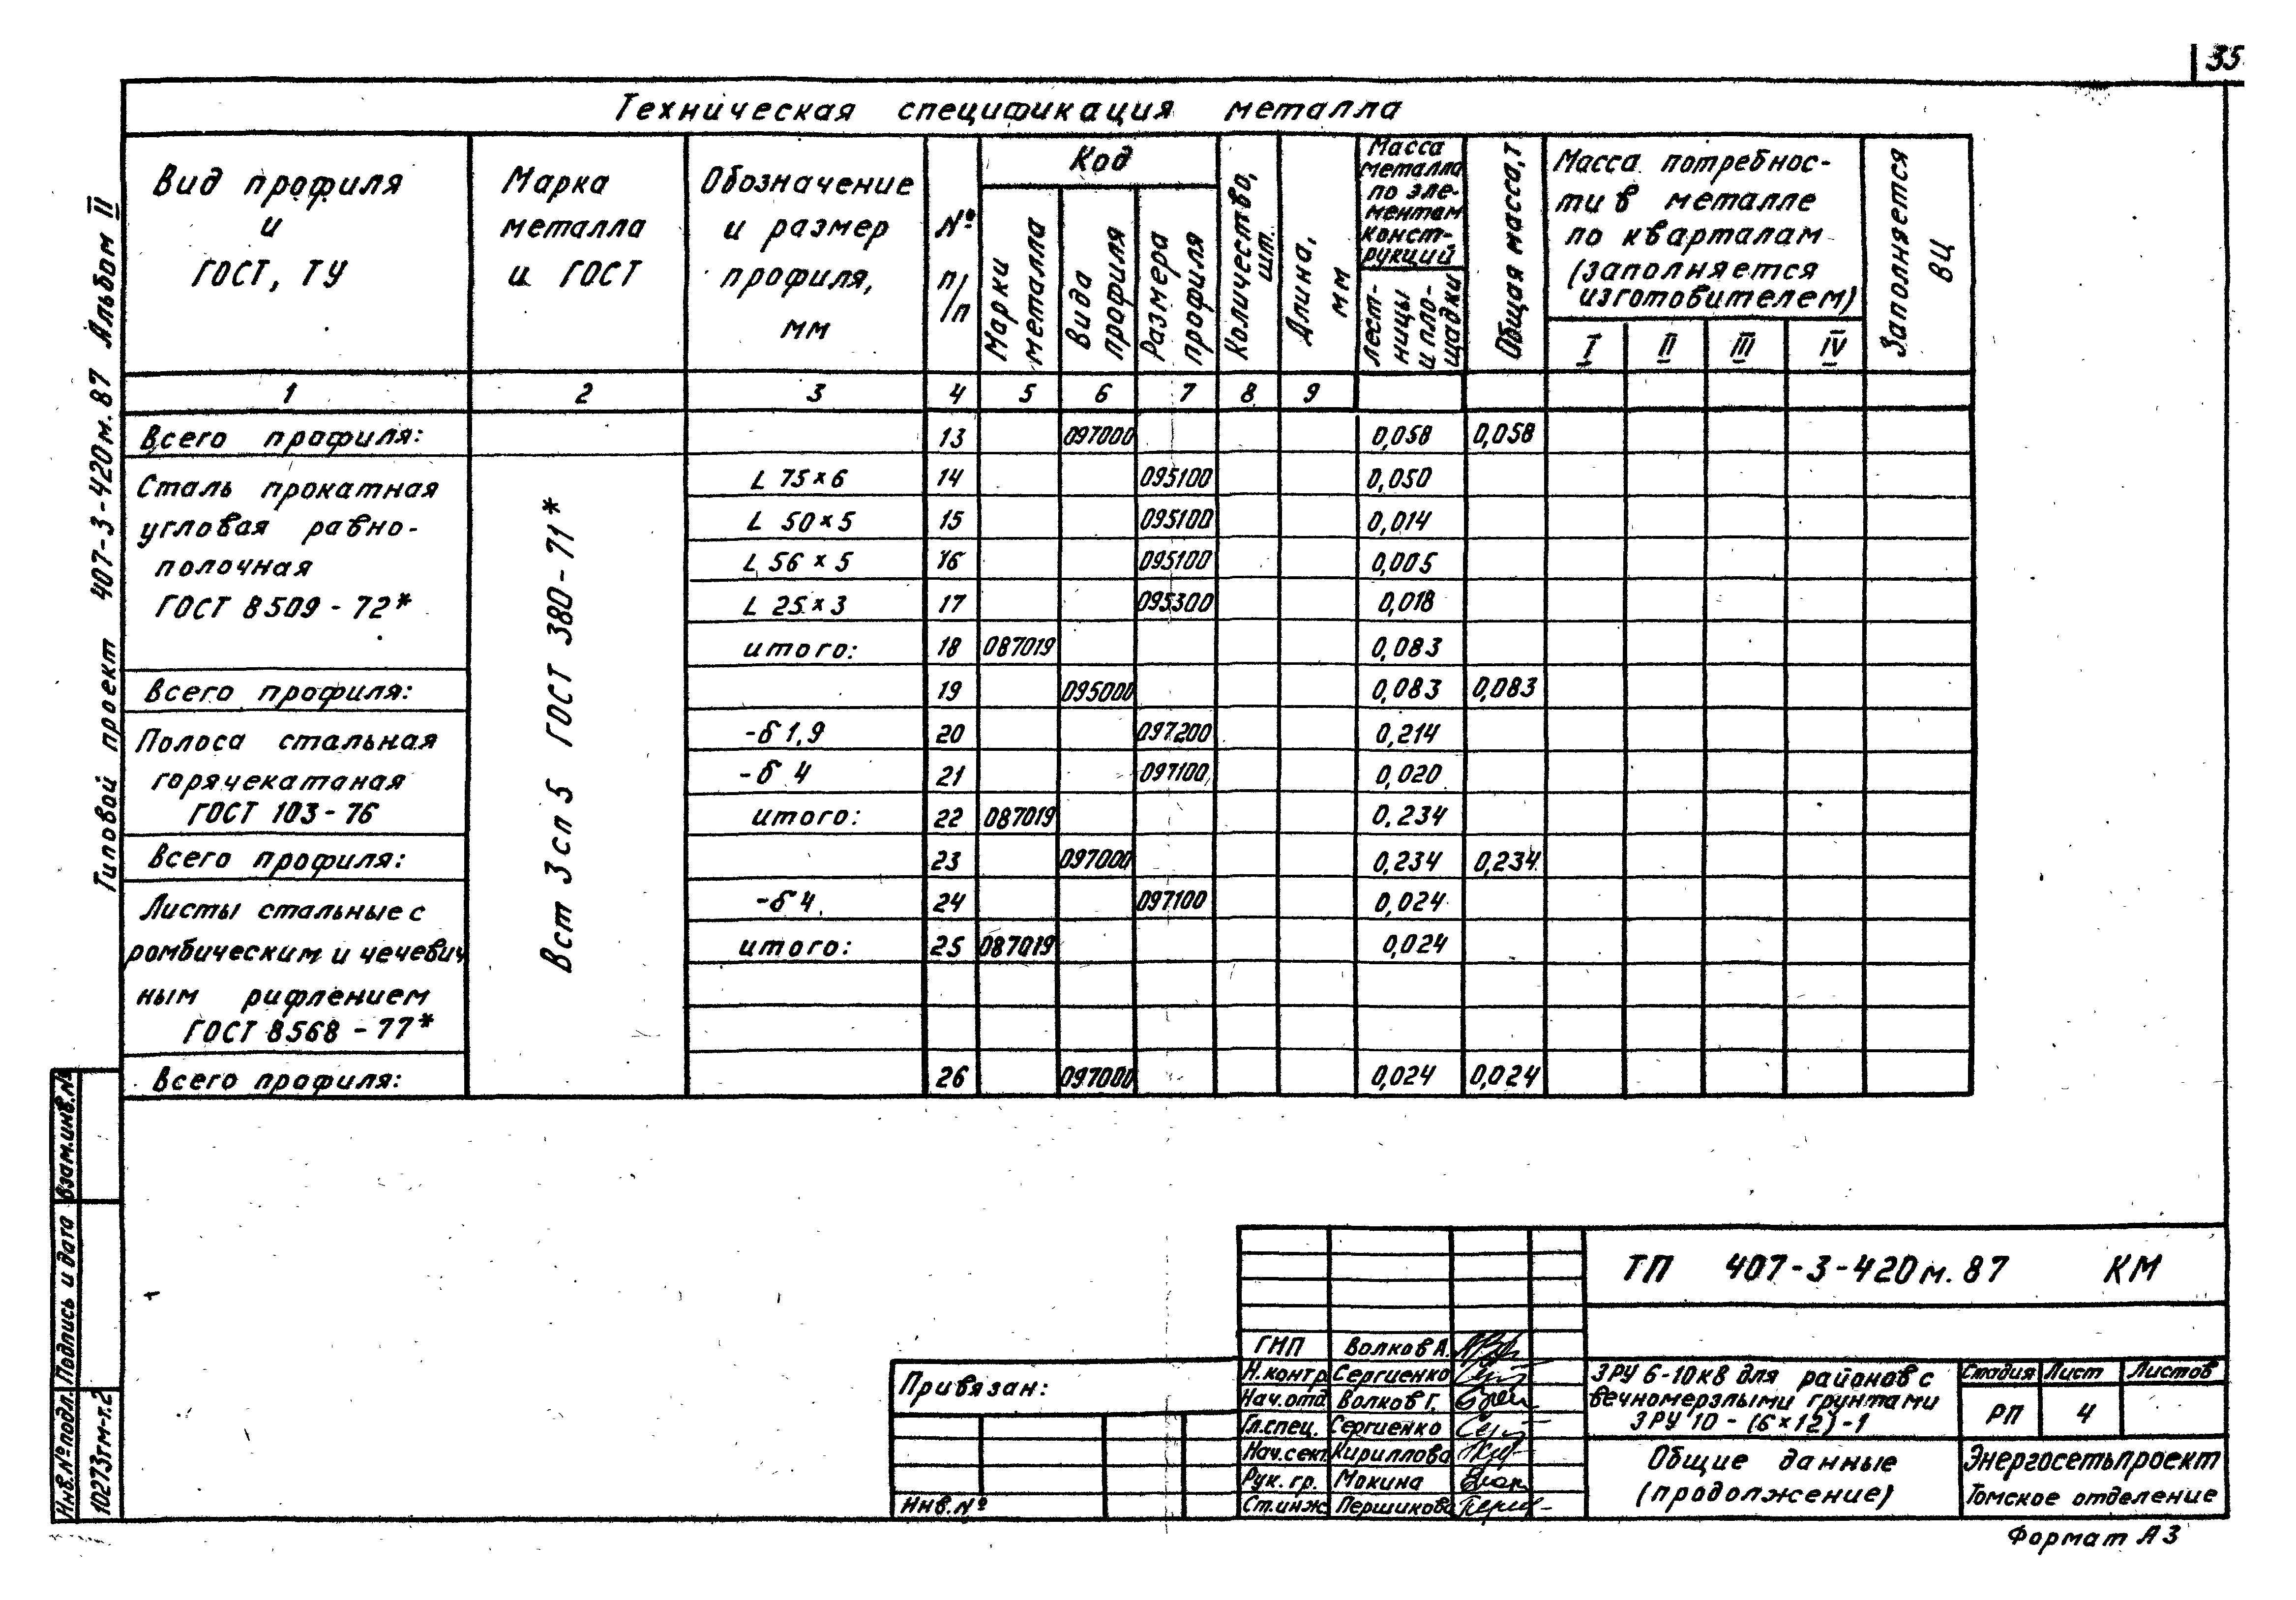 35
Техническая спецификация металла
Вид профиля
и
ГОСТ, ТУ
Марка
металла
и ГОСТ
Обозначение
и размер
профиля,
мм
№
п/п
Код
Марки
металла
Вида
профиля
Размера
профиля
Количество,
шт.
Длина,
мм
Масса
металла
по эле-
ментам
конст-
рукций
Лест-
ницы
и пло-
щадки
Общая масса, т
Масса потребнос-
ти в металле
по кварталам
(заполняется
изготовителем)
I II III IV
Заполняется
ВЦ
1 2 3 4 5 6 7 8 9
Всего профиля: 13 097000 0,058 0,058
Сталь прокатная
угловая равно-
полочная
ГОСТ 8509-72*
Вст 3сп 5 ГОСТ 380-71*
L 75×6 14 095100 0,050
L 50×5 15 095100 0,014
L 56×5 16 095100 0,005
L 25×3 17 095300 0,018
итого: 18 087019 0,083
Всего профиля: 19 095000 0,083 0,083
Полоса стальная
горячекатаная
ГОСТ 103-76
-δ 1,9 20 097200 0,214
-δ 4 21 097100 0,020
итого: 22 087019 0.234
Всего профиля: 23 097000 0,234 0,234
Листы стальные с
ромбическим и чечевич
ным рифлением
ГОСТ 8568-77*
-δ 4 24 097100 0,024
итого: 25 087019 0,024
Всего профиля: 26 097000 0,024 0,024
Типовой проект 407-3-420м.87 Альбом II
Взам.инв.№
Подпись и дата
Инв.№ подл.
10273тм-т.2
Привязан:
Инв.№
ГИП Волков А.
Н.контр Сергиенко
Нач.отд. Волков Г.
Гл.спец. Сергиенко
Нач.сект Кириллова
Рук. гр. Мокина
Ст.инж Першикова
ТП 407-3-420м.87 КМ
ЗРУ 6-10кВ для районов с
вечномерзлыми грунтами
ЗРУ 10-(6×12)-1
Стадия Лист Листов
РП 4
Общие данные
(продолжение)
Энергосетьпроект
Томское отделение
Формат А3